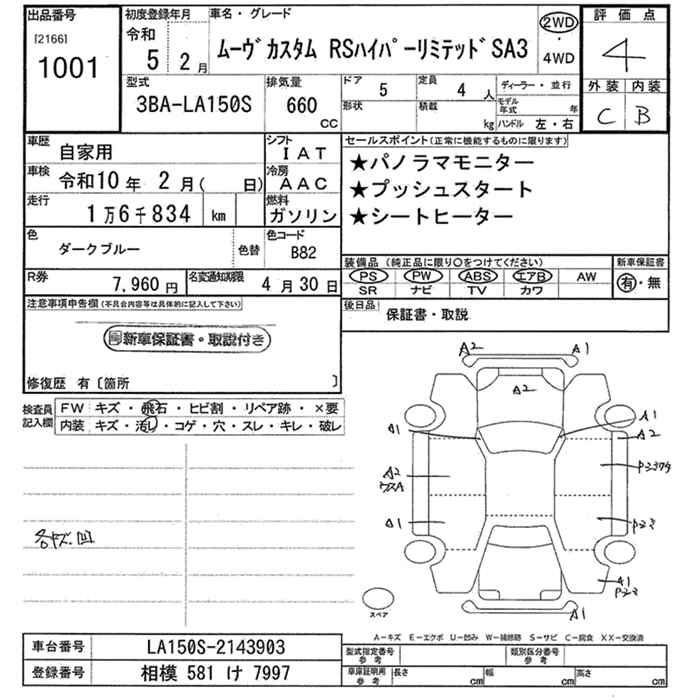 出品番号 初度登録年月 車名・グレード 2WD 評価点
[2166] 令和
1001 5 2月 ムーヴカスタム RSハイパーリミテッドSA3 ・4WD 4
型式 排気量 ドア 5 定員 4人 ディーラー・並行 外装 内装
3BA-LA150S 660 CC 形状 積載 kg モデル年式 年 ハンドル 左・右 C B
車歴 自家用 シフト IAT セールスポイント(正常に機能するものに限ります)
車検 令和10年 2月( 日) 冷房 AAC ★パノラマモニター
走行 1万6千834 km 燃料 ガソリン ★プッシュスタート
★シートヒーター
色 ダークブルー 色替 色コード B82
装備品(純正品に限り○をつけてください) 新車保証書
R券 7,960円 名変通知期限 4月30日 PS PW ABS エアB AW 有・無
SR ナビ TV カワ
注意事項申告欄(不具合内容等は具体的に記入して下さい) 後日品 保証書・取説
新車保証書・取説付き
修復歴 有〔箇所 〕
検査員記入欄 FW キズ・飛石・ヒビ割・リペア跡・×要
内装 キズ・汚し・コゲ・穴・スレ・キレ・破レ
A2 A1
A2
A1 A1 A2
A2
A1
A1
A1
スペア
A-キズ E-エクボ U-凹み W-補修跡 S-サビ C-腐食 XX-交換済
車台番号 LA150S-2143903 型式指定番号参考 類別区分番号参考
登録番号 相模 581 け 7997 車庫証明用参考 長さ cm 幅 cm 高さ cm